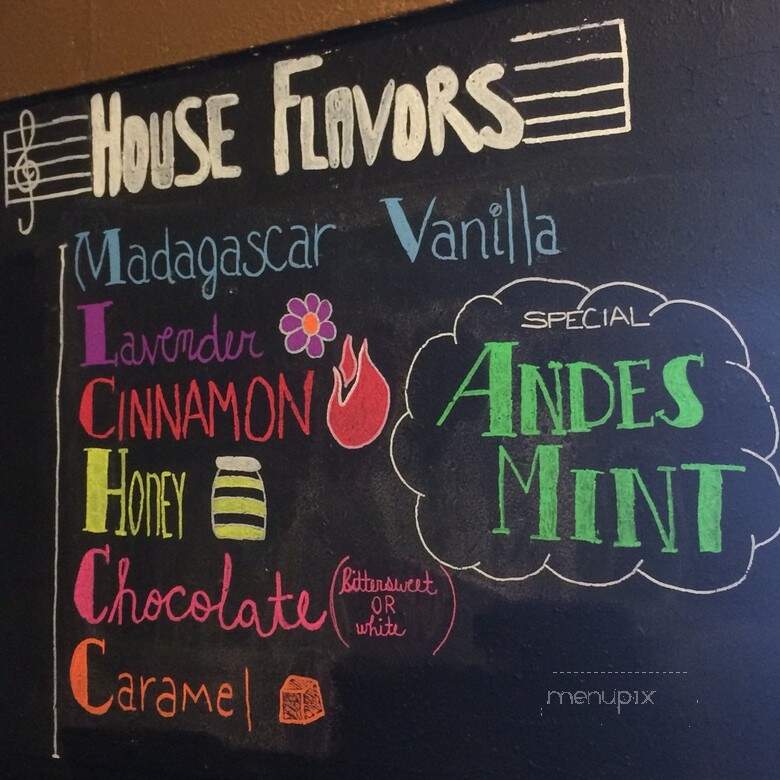 HOUSE FLAVORS
Madagascar Vanilla
Lavender
CINNAMON
HONEY
Chocolate (bittersweet
OR
white)
Caramel
SPECIAL
ANDES
MINT
menupix